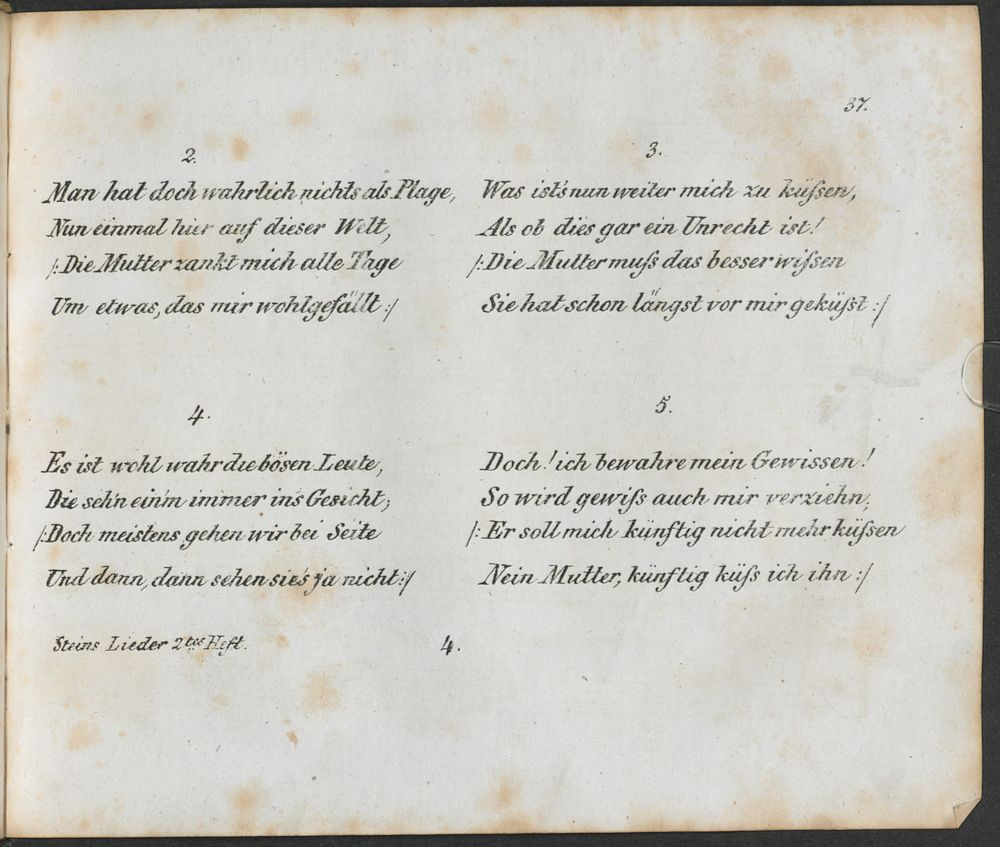 37.
2.
Man hat doch wahrlich nichts als Plage,
Nun einmal hier auf dieser Welt,
/: Die Mutter zankt mich alle Tage
Um etwas, das mir wohlgefällt :/
3.
Was ist's nun weiter mich zu küſsen,
Als ob dies gar ein Unrecht ist!
/: Die Mutter muſs das besser wiſsen
Sie hat schon längst vor mir geküſst :/
4.
Es ist wohl wahr die bösen Leute,
Die seh'n ein'm immer ins Gesicht;
/: Doch meistens gehen wir bei Seite
Und dann, dann sehen sie's ja nicht :/
5.
Doch! ich bewahre mein Gewissen!
So wird gewiſs auch mir verziehn,
/: Er soll mich künftig nicht mehr küſsen
Nein Mutter, künftig küſs ich ihn :/
Steins Lieder 2tes Heft.
4.